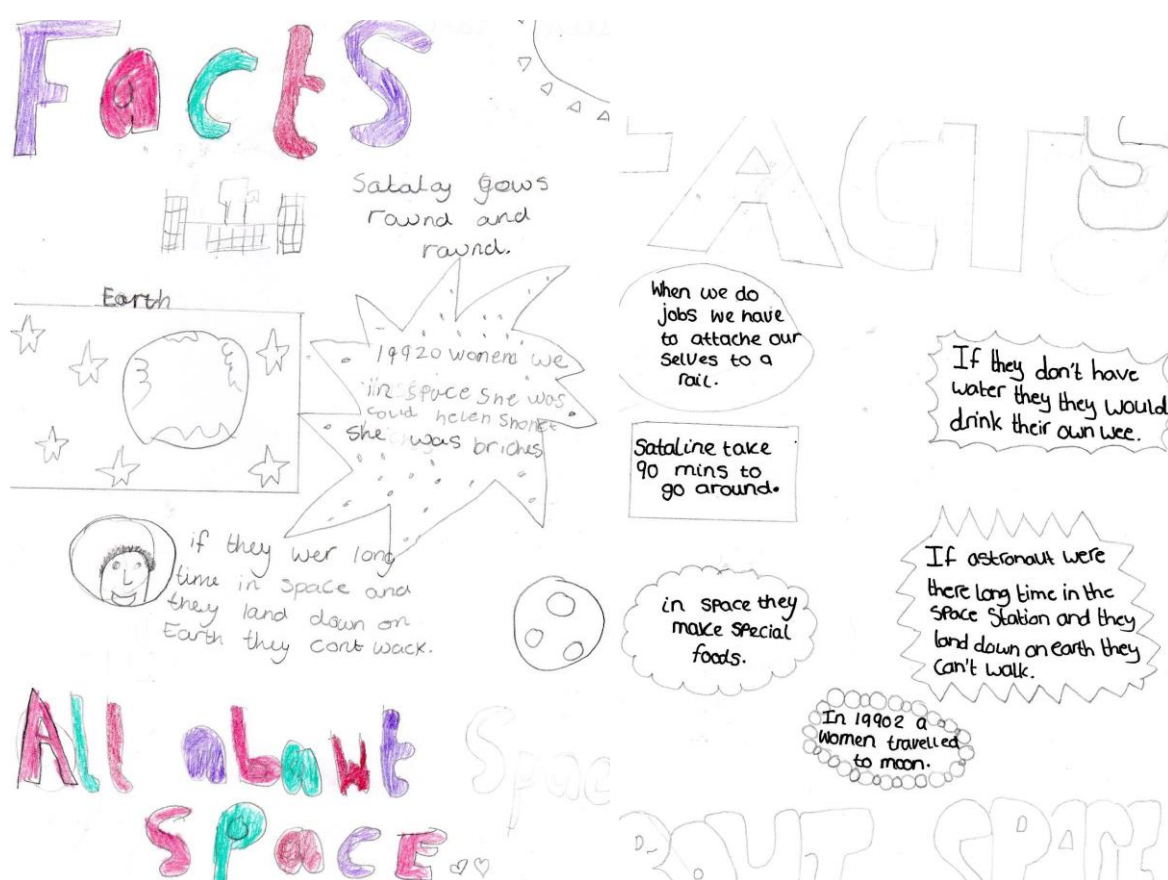 Facts
Satalay gows
rawnd and
rawnd.
Earth
19920 womens we
in space she was
could helen
she was briches
if they wer long
time in space and
they land down on
Earth they cont wack.
All abawt
Space
Spac
FACTS
When we do
jobs we have
to attache our
selves to a
rail.
If they don't have
water they they would
drink their own wee.
Sataline take
90 mins to
go around.
If astronaut were
there long time in the
space Station and they
land down on earth they
can't walk.
in space they
make special
foods.
In 19902 a
women travelled
to moon.
BOUT SPACE